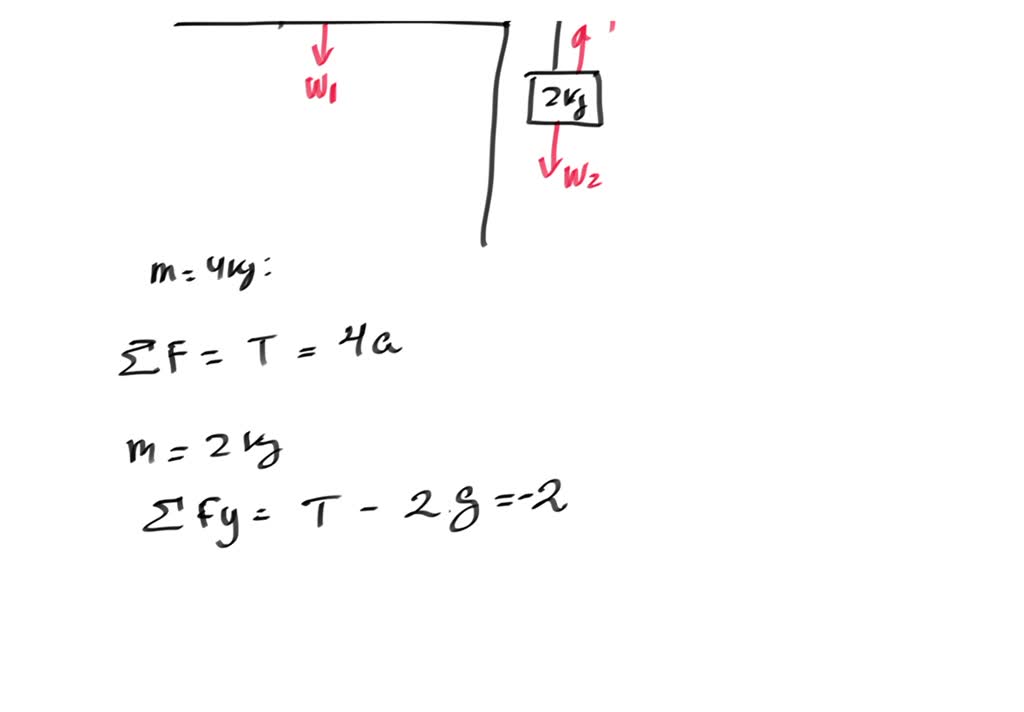 W1
2kg
W2
m = 4kg:
ΣF = T = 4a
m = 2kg
ΣFy = T - 2.g = -2